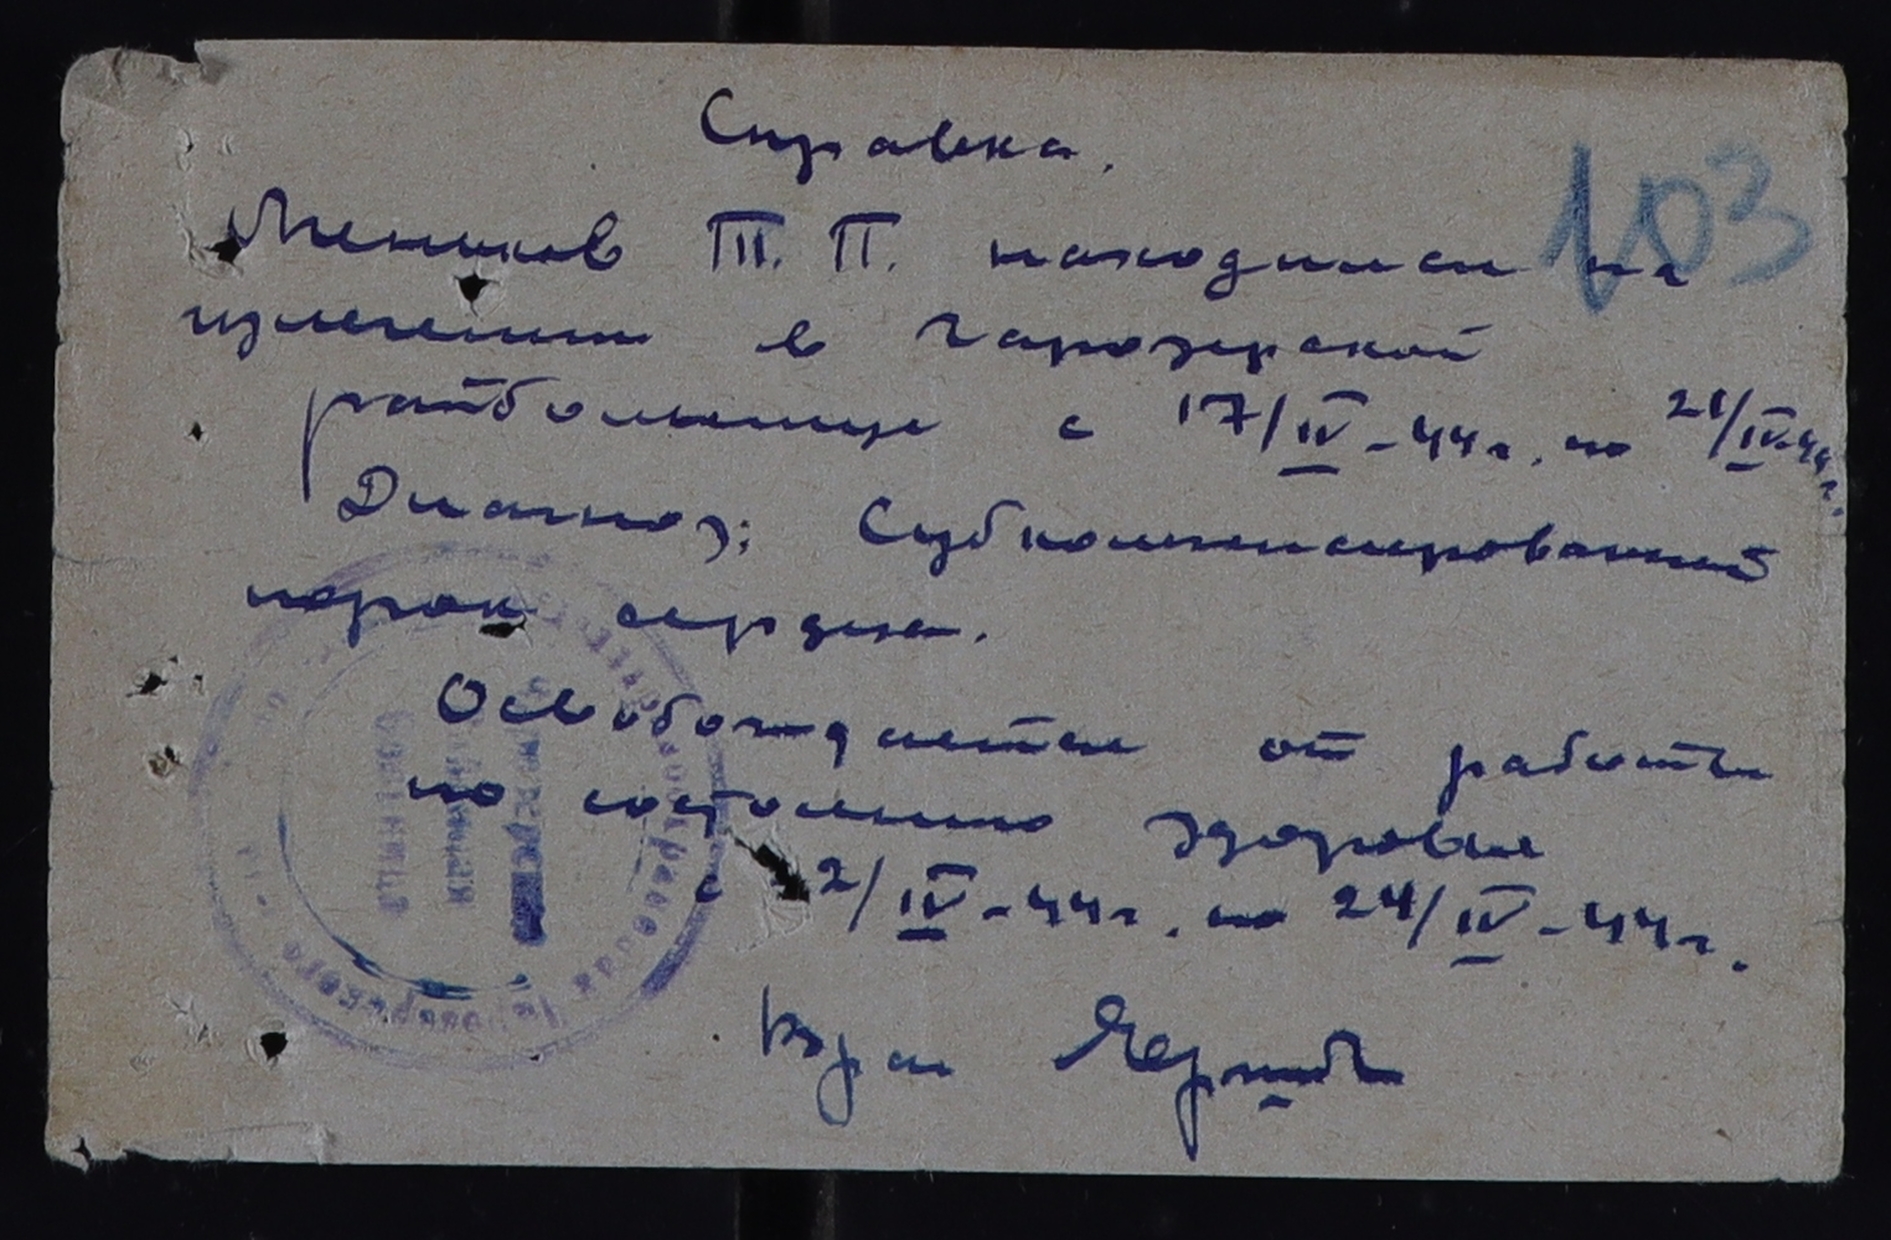 Справка.
103
Мешиков Т. П. находился на
излечении в Чарозерской
райбольнице с 17/IV-44г. по 21/IV-44г.
Диагноз: Субкомпенсированный
порок сердца.
Освобождается от работы
по состоянию здоровья
с 2/IV-44г. по 24/IV-44г.
Врач
Чарозерская
больница